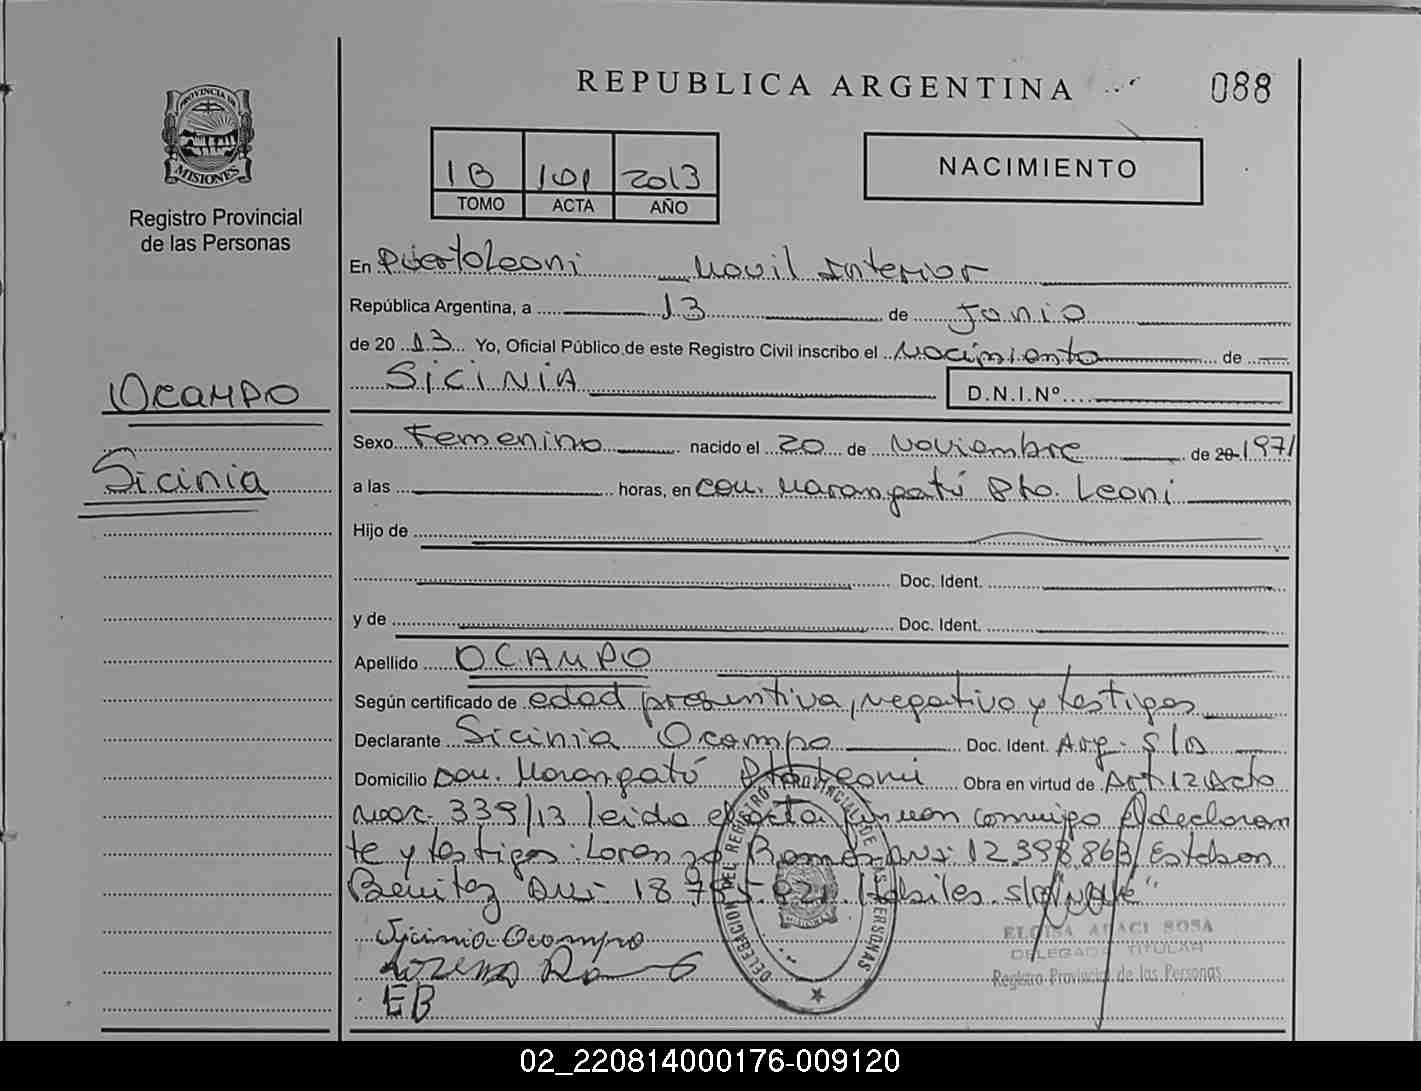 REPUBLICA ARGENTINA
088
PROVINCIA DE
MISIONES
Registro Provincial
de las Personas
1B 101 2013
TOMO ACTA AÑO
NACIMIENTO
En Puerto Leoni Movil Interior
República Argentina, a 13 de Junio
de 20 13 Yo, Oficial Público de este Registro Civil inscribo el Nacimiento de
SICINIA
D.N.I.Nº
OCAMPO
Sicinia
Sexo Femenino nacido el 20 de Noviembre de 20 1971
a las horas, en Com. Marangatú Pto. Leoni
Hijo de
Doc. Ident.
y de Doc. Ident.
Apellido OCAMPO
Según certificado de edad presuntiva, negativo y testigos
Declarante Sicinia Ocampo Doc. Ident. Arg. S/D
Domicilio Com. Marangatú Pto Leoni Obra en virtud de Art. 12 Acto
339/13 leida el acta firman conmigo el declaran
te y testigos: Lorenzo Ramos DNI: 12.398.863 Esteban
Benitez DNI: 18.785.821 Habiles
Sicinia Ocampo
Lorenzo Ramos
EB
DELEGACION DEL REGISTRO PROVINCIAL DE LAS PERSONAS
ELOISA ARACI SOSA
DELEGADO TITULAR
Registro Provincial de las Personas
02_220814000176-009120